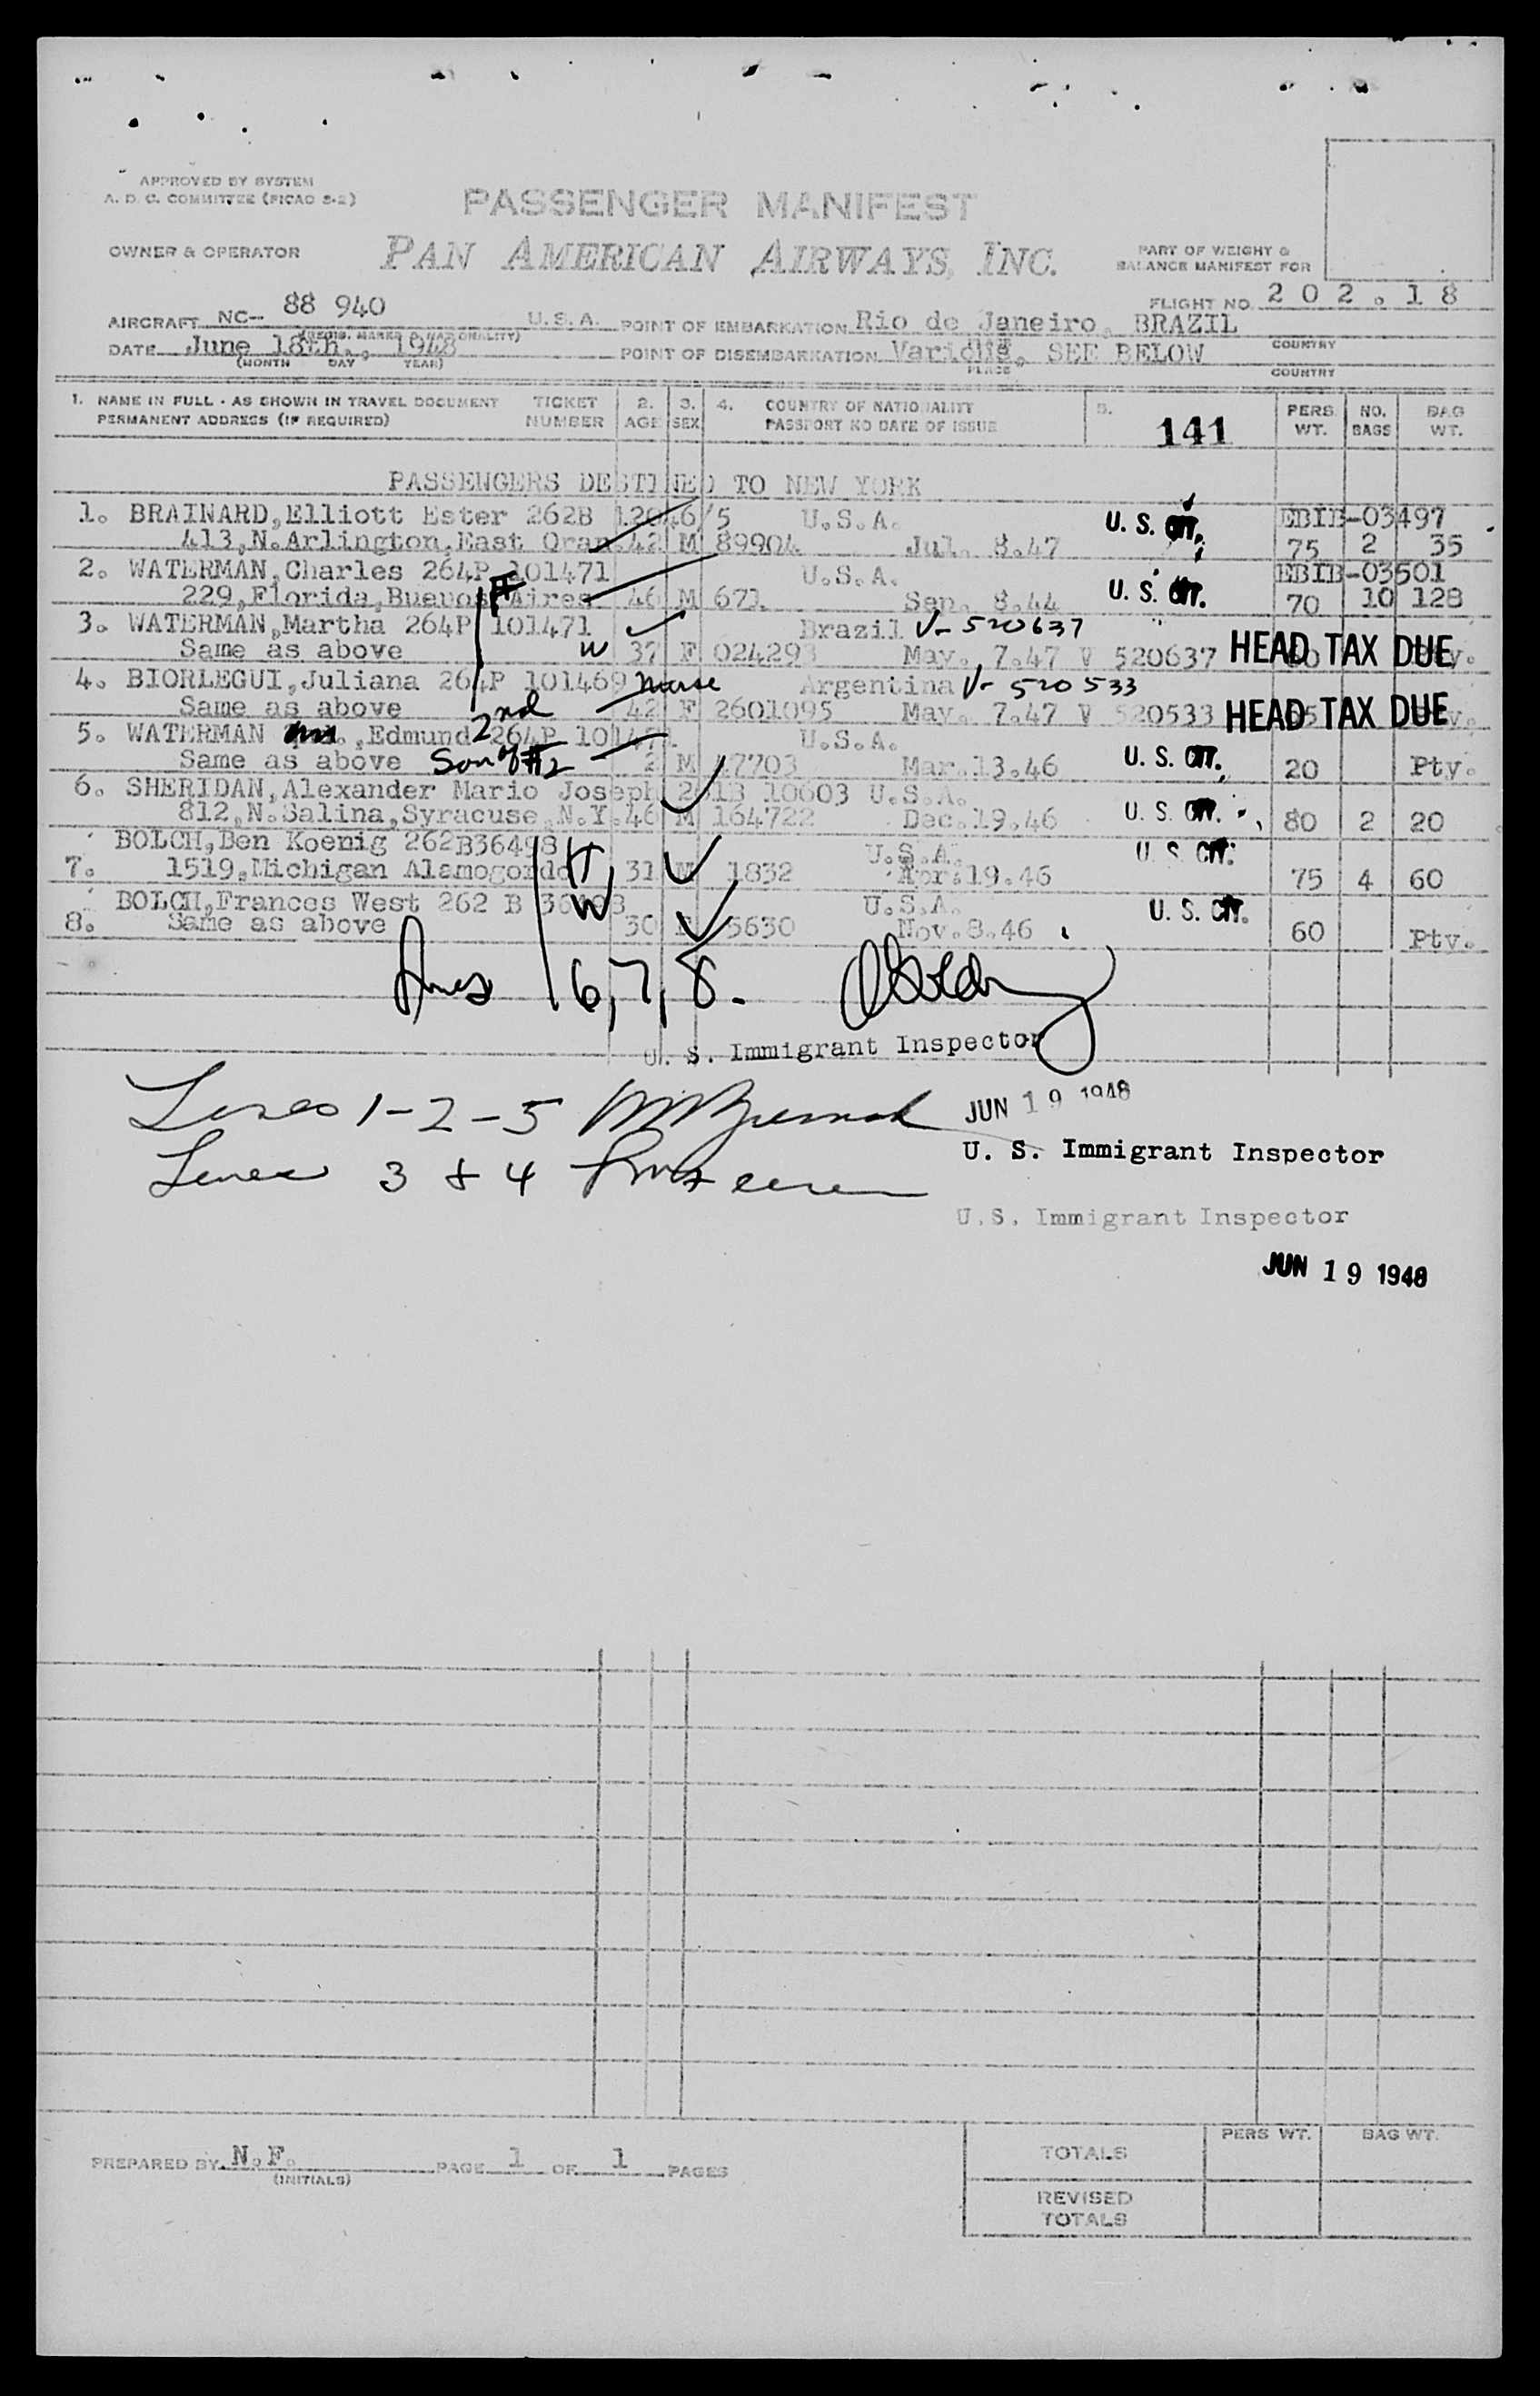 APPROVED BY SYSTEM
A. D. C. COMMITTEE (PICAO S-2)
PASSENGER MANIFEST
OWNER & OPERATOR PAN AMERICAN AIRWAYS, INC. PART OF WEIGHT &
BALANCE MANIFEST FOR
FLIGHT NO. 202.18
AIRCRAFT NC- 88 940 U.S.A. POINT OF EMBARKATION Rio de Janeiro, BRAZIL
COUNTRY
DATE June 18th., 1948 POINT OF DISEMBARKATION SEE BELOW
(MONTH DAY YEAR) PLACE COUNTRY
1. NAME IN FULL - AS SHOWN IN TRAVEL DOCUMENT TICKET 2. 3. 4. COUNTRY OF NATIONALITY 5. PERS. NO. BAG
PERMANENT ADDRESS (IF REQUIRED) NUMBER AGE SEX PASSPORT NO DATE OF ISSUE 141 WT. BAGS WT.
PASSENGERS DESTINED TO NEW YORK
1. BRAINARD,Elliott Ester 262B U.S.A. U. S. CIT. EBIB-03497
413,N.Arlington,East Oran. 42 M 89904 Jul. 8.47 75 2 35
2. WATERMAN,Charles 264P 101471 U.S.A. U. S. CIT. EBIB-03501
229,Florida,Buenos Aires 46 M 671 Sep. 8.44 70 10 128
3. WATERMAN,Martha 264P 101471 Brazil V- 520637
Same as above W 37 F May. 7.47 V 520637 HEAD TAX DUE
4. BIORLEGUI,Juliana 264P 101469 nurse Argentina V- 520533
Same as above 42 F 2601095 May. 7.47 V 520533 HEAD TAX DUE
5. WATERMAN ,Edmund 2nd 264P U.S.A.
Same as above Son of #2 2 M Mar.13.46 U. S. CIT. 20 Pty.
6. SHERIDAN,Alexander Mario Joseph 10603 U.S.A.
812,N.Salina,Syracuse,N.Y. 46 M 164722 Dec.19.46 U. S. CIT. 80 2 20
BOLCH,Ben Koenig 262B36498 U.S.A. U. S. CIT.
7. 1519,Michigan Alamogordo H 31 M 1832 Apr.19.46 75 4 60
BOLCH,Frances West 262 B W U.S.A. U. S. CIT.
8. Same as above 30 F 5630 Nov.8.46 60 Pty.
6, 7, 8.
U. S. Immigrant Inspector
Lines 1-2-5 JUN 19 1948
U. S. Immigrant Inspector
Lines 3 & 4
U.S. Immigrant Inspector
JUN 19 1948
PREPARED BY N.F. PAGE 1 OF 1 PAGES
(INITIALS)
PERS WT. BAG WT.
TOTALS
REVISED
TOTALS